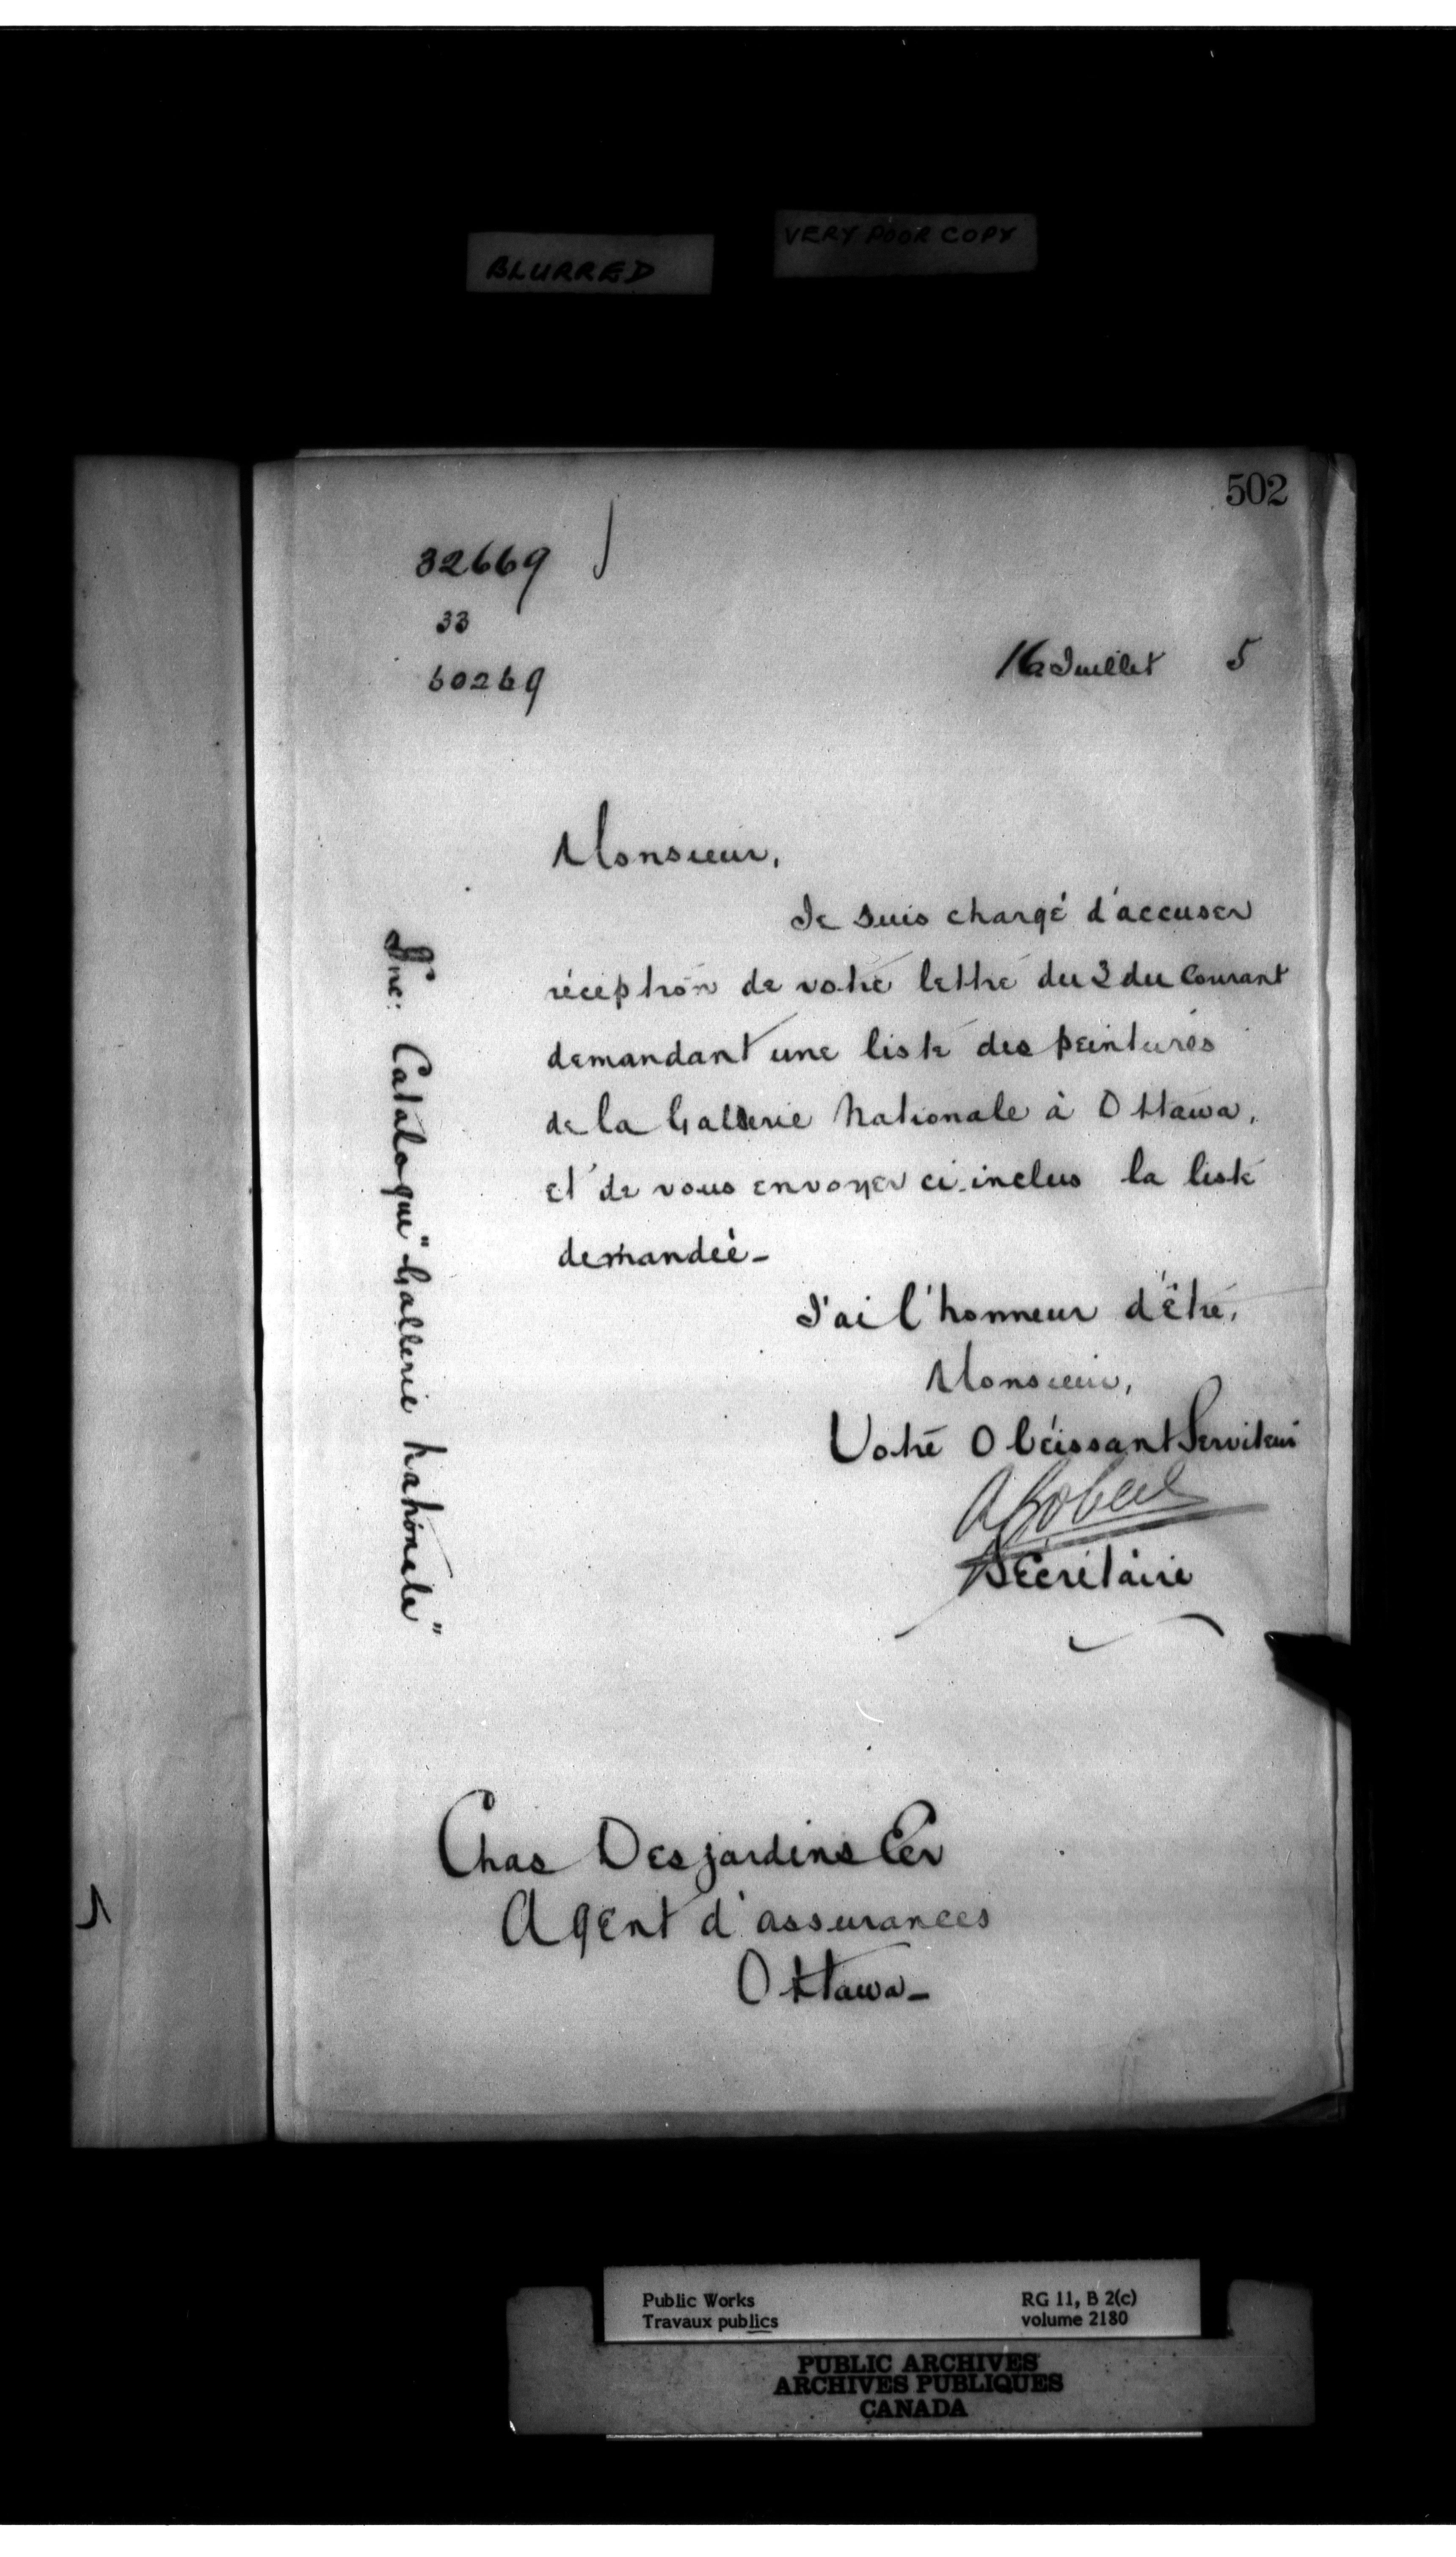 BLURRED
VERY POOR COPY
502
32669
33
60269
16 Juillet 5
Monsieur,
Je suis chargé d'accuser
réception de votre lettre du 3 du Courant
demandant une liste des peintures
de la Gallerie Nationale à Ottawa,
et de vous envoyer ci-inclus la liste
demandée-
J'ai l'honneur d'être,
Monsieur,
Votre Obéissant Serviteur
A Gobeil
Secrétaire
Inc: Catalogue "Gallerie Nationale"
Chas Desjardins Ecr
Agent d'assurances
Ottawa-
Public Works
Travaux publics
RG 11, B 2(c)
volume 2180
PUBLIC ARCHIVES
ARCHIVES PUBLIQUES
CANADA